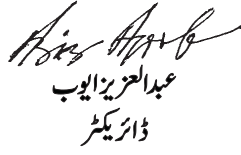 عبدالعزیز ایوب
ڈائریکٹر